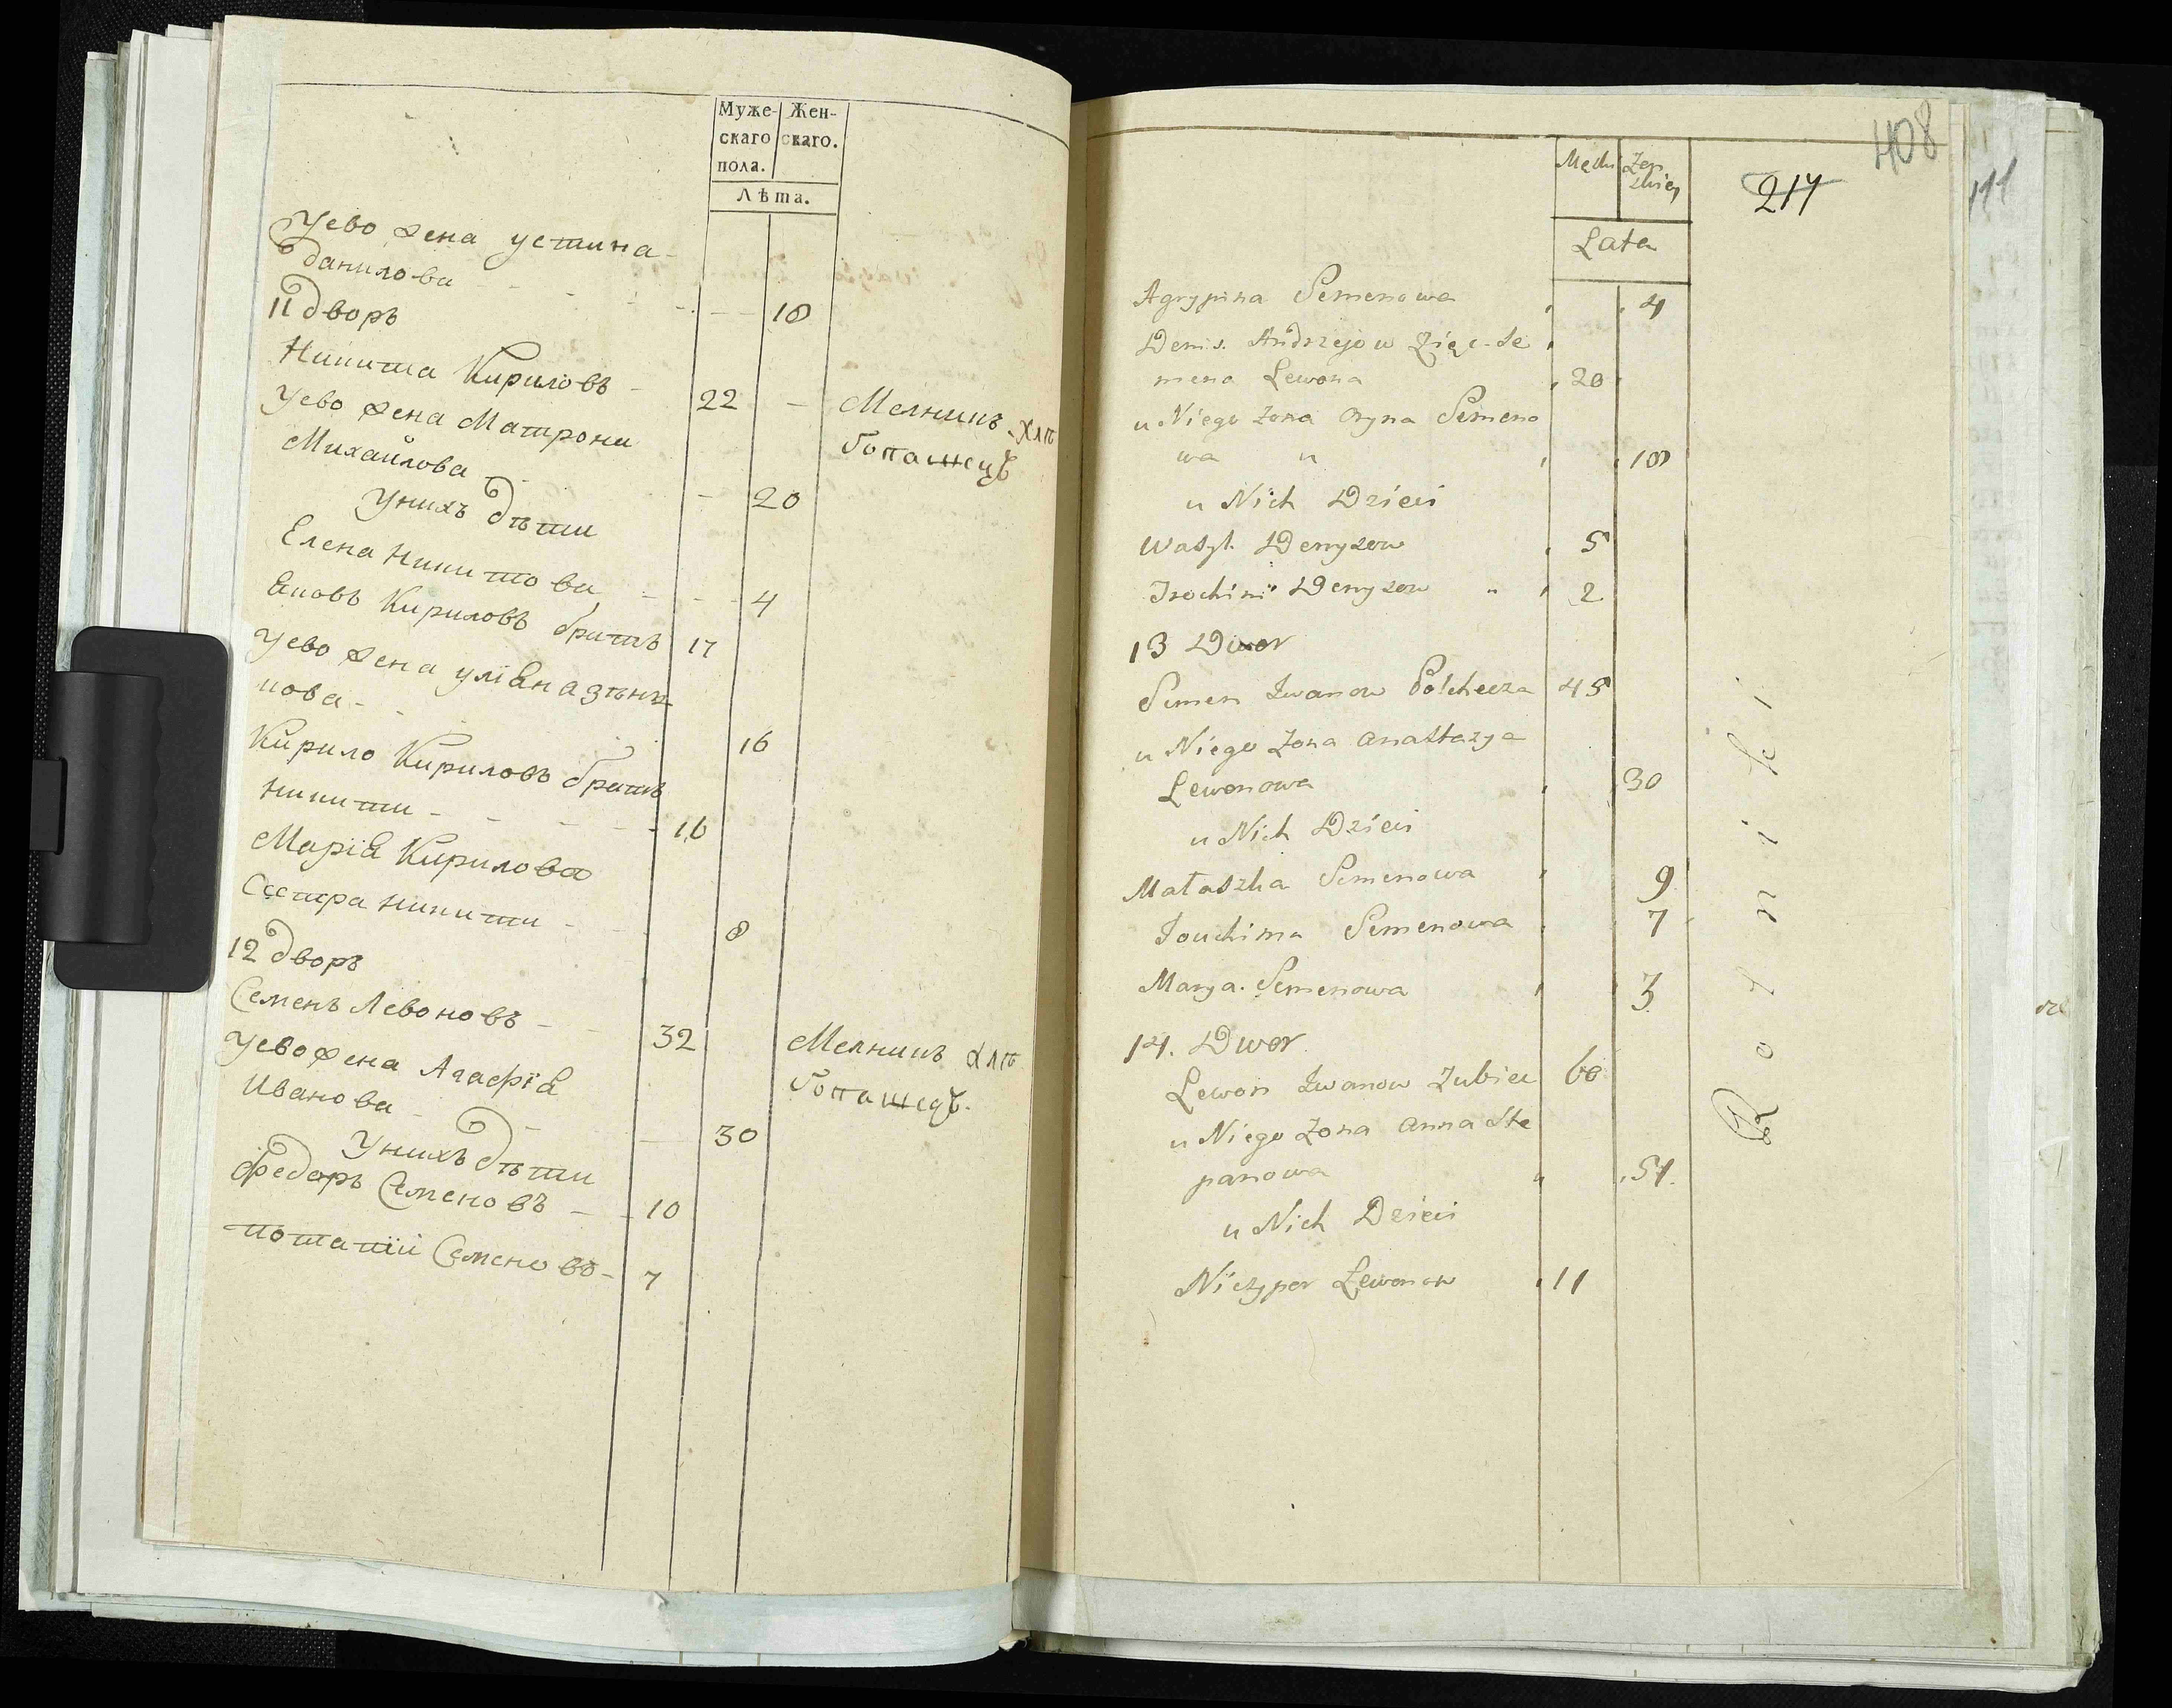 Муже- Жен-
скаго скаго.
пола.
Лѣта.
Уево жена устина
данилова - - - - 18
11 дворъ
Никита Кириловъ - 22 - Мелникъ Хлѣ
Уево жена Матрона бопашецъ
Михайлова - - 20
Унихъ дѣти
Елена Никитова - - - 4
Яковъ Кириловъ братъ 17
Уево жена улiяна зѣнк-
нова - - 16
Кирило Кириловъ братъ
Никити - - - - 16
Марiя Кирилова
Сестра Никити - - 8
12 дворъ
Семенъ Левоновъ - - 32 Мелникъ хлѣ
Уево жена Агафiя бопашецъ.
Иванова - - 30
Унихъ дѣти
Федоръ Семеновъ - - 10
потапiй Семеновъ - 7
408
111
Męzki Żeń
skiey
217
Lata
Agrypina Semenowa 4
Denis Andrzejow Zięc Se
mena Lewona 20
u Niego Zona Oryna Semeno
wa 18
u Nich Dzieci
Wasyl Denysow 5
Denysow 2
13 Dwor
Semen Iwanow 45
u Niego Zona Anastazya
Lewonowa 30
u Nich Dzieci
Małaszka Semenowa 9
Jouchima Semenowa 7
Marya Semenowa 3
14. Dwor
Lewon Iwanow Zubiec 60
u Niego Zona Anna Ste
panowa 51.
u Nich Dzieci
Niczypor Lewonow 11
Rolniki